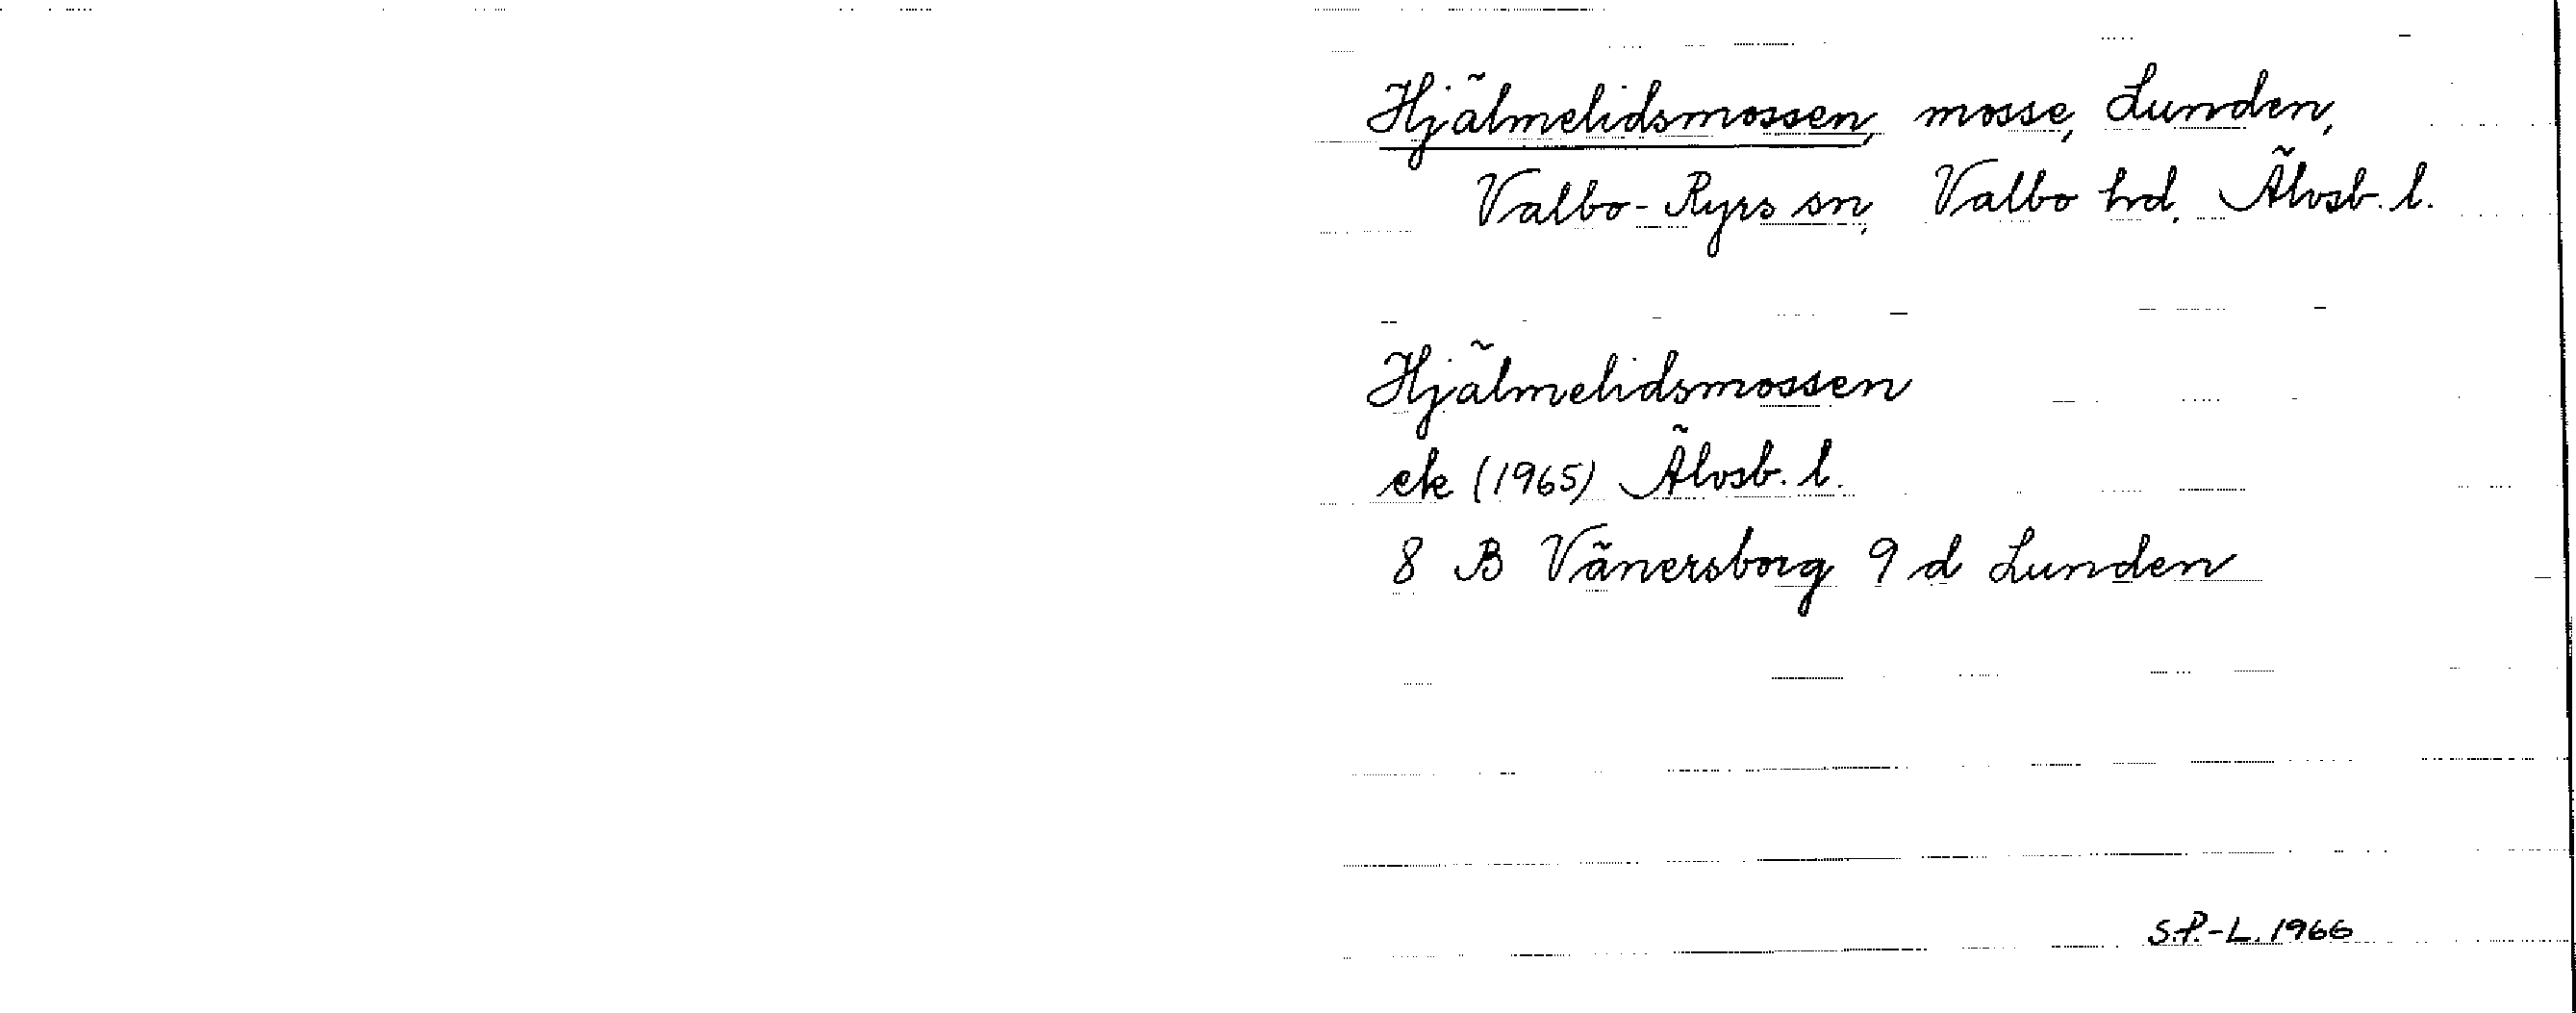 Hjälmelidsmossen, mosse, Lunden,
Valbo-Ryrs sn, Valbo hd, Älvsb. l.
Hjälmelidsmossen
ek (1965) Älvsb. l.
8 B Vänersborg 9 d Lunden
S.P.-L. 1966